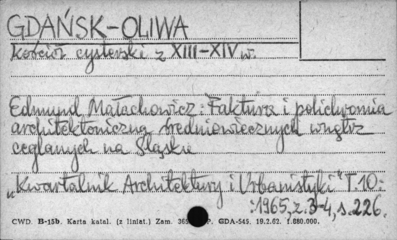 GDAŃSK-OLIWA
Kościół cysterski z XIII-XIV w.
Edmund Małachowicz: Faktura i polichromia
architektoniczna średniowiecznych wnętrz
ceglanych na Śląsku
„Kwartalnik Architektury i Urbanistyki" T.10:
:1965, z.3-4, s.226.
CWD. B-15b. Karta katal. (z liniat.) Zam. P. GDA-545. 19.2.62. 1.680.000.